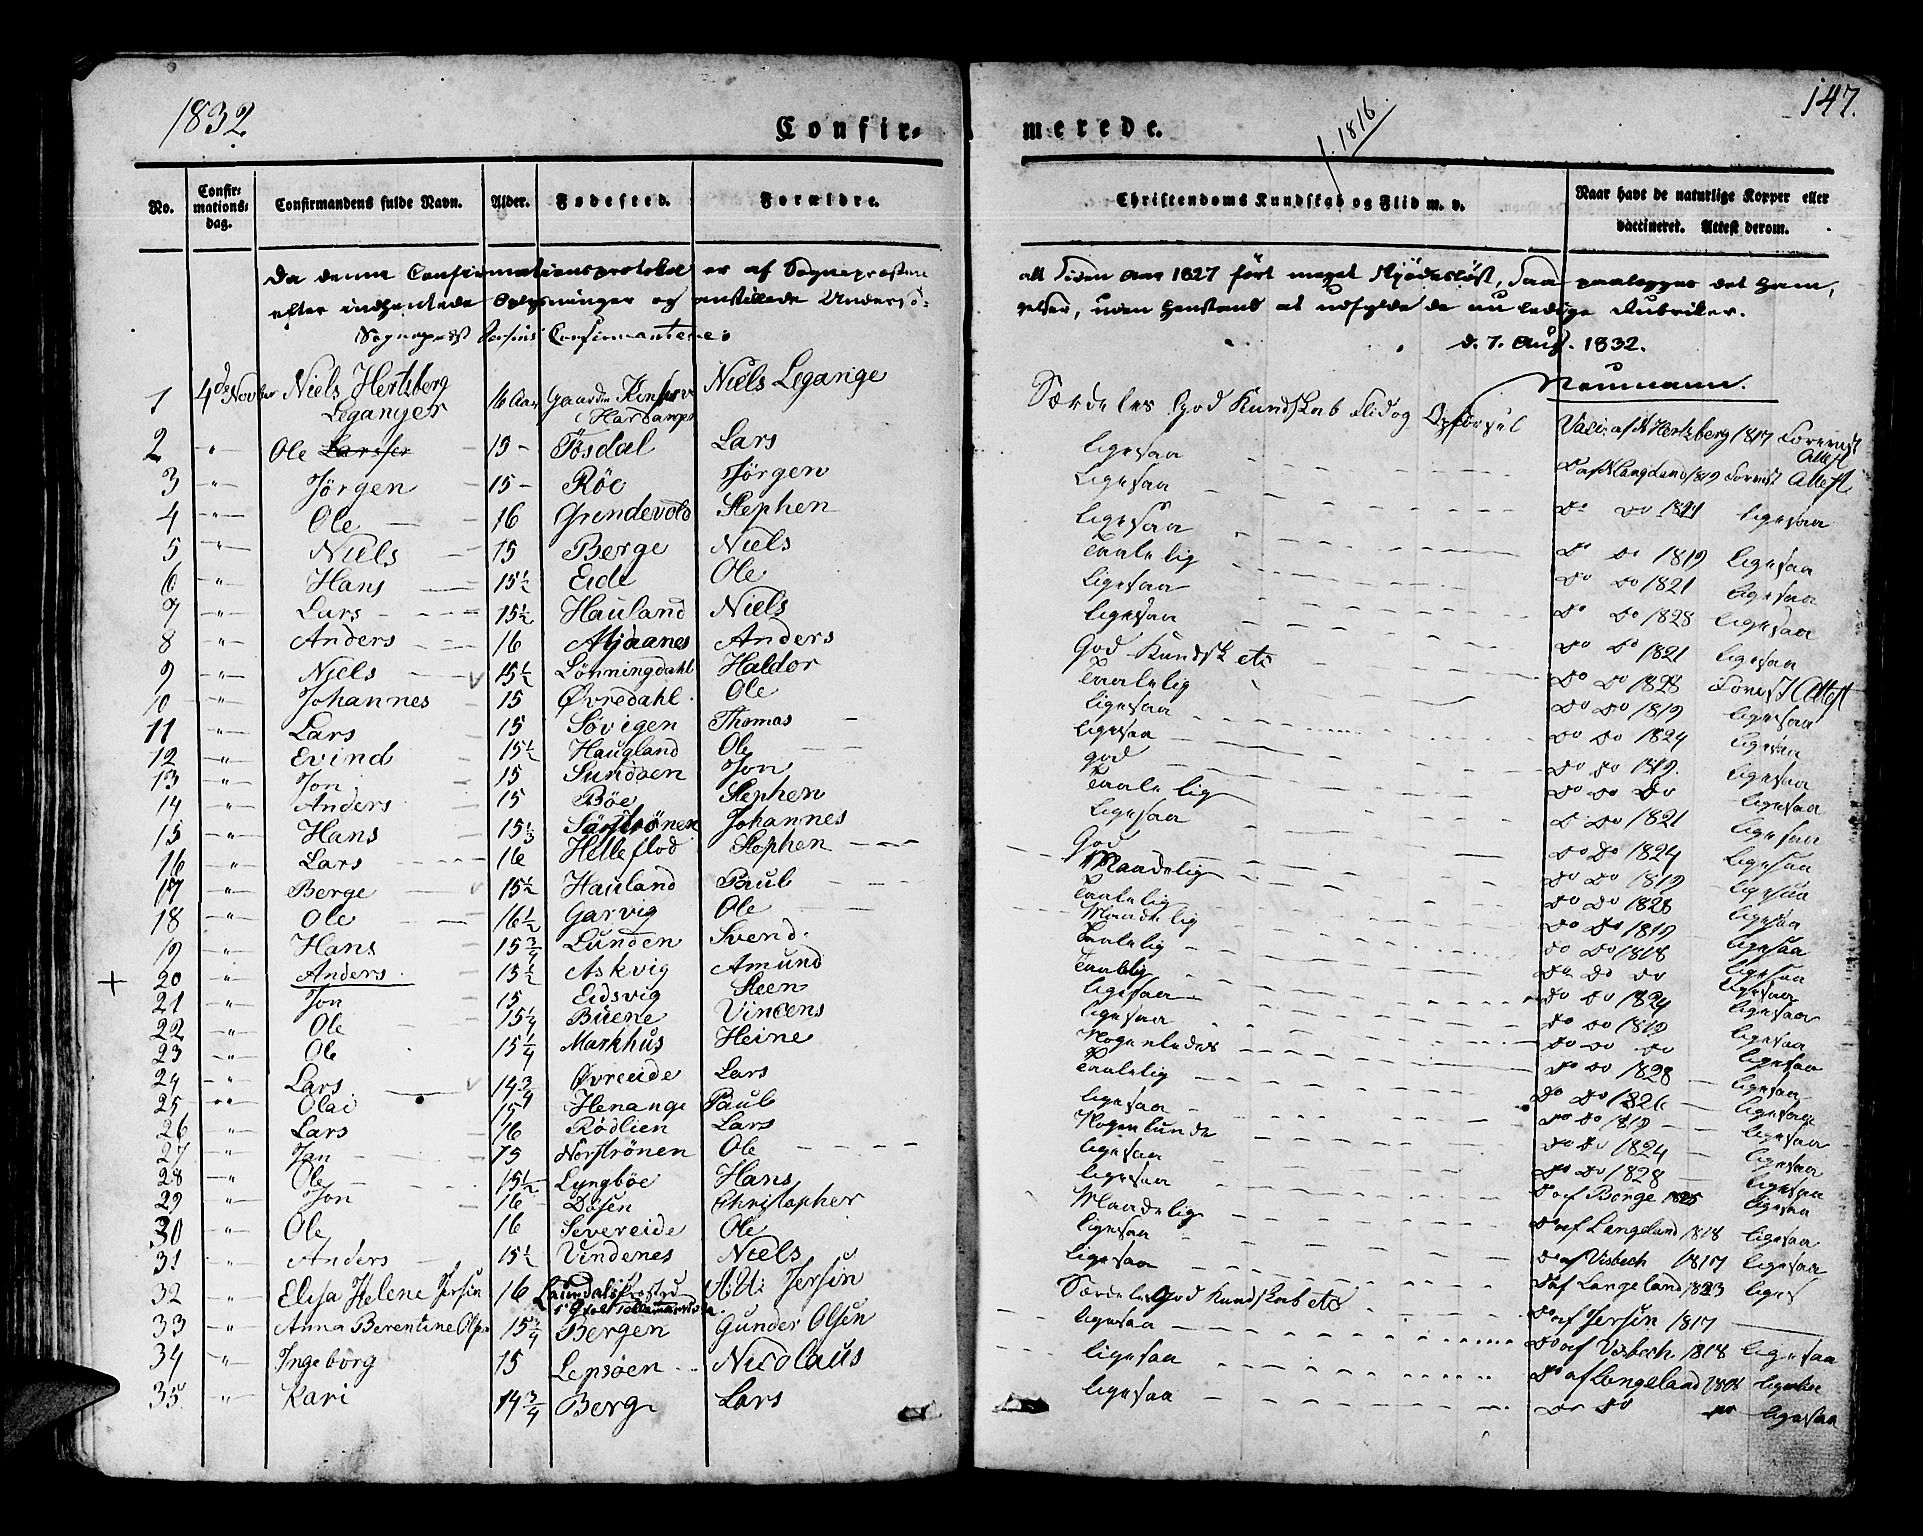 1832
Confir-
No.
Confir-
mations-
dag.
Confirmandens fulde Navn.
Alder.
Fødested.
Forældre.
Da denne Confirmationsprotokol er af Sogneprosten
efter indhentede Oplysninger og anstillede Undersö-
Confirmantene:
1 4de Novber Niels Hertzberg Leganger 16 Aar Gaarden Kinserv Hardanger Niels Legange
2 " Ole Larssen 15 Tösdal Lars
3 " Jörgen 15 Röe Jörgen
4 " Ole 16 Grindevold Stephen
5 " Niels 15 Berge Niels
6 " Hans 15½ Eide Ole
7 " Lars 15½ Hauland Niels
8 " Anders 16 Mjaanes Anders
9 " Niels 15½ Lönningdahl Haldor
10 " Johannes 15 Øvredahl Ole
11 " Lars 15 Sövigen Thomas
12 " Evind 15½ Haugland Ole
13 " Jon 15 Sundöen Jon
14 " Anders 15 Böe Stephen
15 " Hans 15⅓ Särströnen Johannes
16 " Lars 16 Helleflod Stephen
17 " Berge 15½ Hauland Paul
18 " Ole 16½ Garvig Ole
19 " Hans 15¾ Lunden Svend
+ 20 " Anders 15½ Askvig Amund
21 " Jon 15 Eidsvig Steen
22 " Ole 15¼ Buene Vincens
23 " Ole 15¼ Markhus Heine
24 " Lars 14¾ Øvreeide Lars
25 " Olai 15 Henange Paul
26 " Lars 16 Rödlien Lars
27 " Jan 15 Norströnen Ole
28 " Ole 15½ Lyngböe Hans
29 " Jon 16 Dösen Christopher
30 " Ole 16 Severeide Ole
31 " Anders 15½ Vindenes Niels
32 " Elisa Helene Jersin 16 Jersin
33 " Anna Berentine Ols 15¾ Bergen Gunder Olsen
34 " Ingeborg 15 Lepsöen Nicolaus
35 " Kari 14¾ Berg Lars
147.
merede.
f. 1816
Christendoms Kundskab og Flid m. v.
Naar havt de naturlige Kopper eller
vaccineret. Attest derom.
alt siden Aar 1827 fört meget skjödeslöst, saa paalegges det ham,
relser, uden Henstand at udfylde de nu ledige Rubriker.
d. 7. Aug. 1832.
Neumann.
Særdeles God Kundskab Flid og Opförsel Vacc. af N Hertzberg 1817 Foreviist Attest
ligesaa Do af Langeland 1819 Foreviist Attest
ligesaa Do Do 1821 ligesaa
ligesaa Do Do 1819 ligesaa
Taalelig Do Do 1821 ligesaa
ligesaa Do Do 1828 ligesaa
ligesaa Do Do 1821 ligesaa
God Kundsk etc Do Do 1828 Foreviist Attest
Taalelig Do Do 1819 ligesaa
ligesaa Do Do 1824 ligesaa
ligesaa Do Do 1819. ligesaa
god Do Do Do ligesaa
Taalelig Do Do 1821 ligesaa
ligesaa Do Do 1824 ligesaa
God Do Do 1819 ligesaa
Maadelig Do Do 1828 ligesaa
Taalelig Do Do 1819 ligesaa
Maadelig Do Do 1818 ligesaa
Taalelig Do Do Do ligesaa
Taalelig Do Do 1824 ligesaa
ligesaa Do Do 1819 ligesaa
ligesaa Do Do Do ligesaa
Nogenledes Do Do 1828 ligesaa
Taalelig Do Do 1826 ligesaa
ligesaa Do Do 1819 ligesaa
Nogenlunde Do Do 1824 ligesaa
ligesaa Do Do 1828 ligesaa
ligesaa Do af Berge 1825 ligesaa
Maadelig Do af Langeland 1818 ligesaa
ligesaa Do af Visbech 1817 ligesaa
ligesaa Do af Langeland 1823 liges
Særdeles God Kundskab etc Do af Jersin 1817
ligesaa Do af Visbech 1818 ligesaa
ligesaa Do af Langeland ligesaa
ligesaa Do Do Do ligesaa